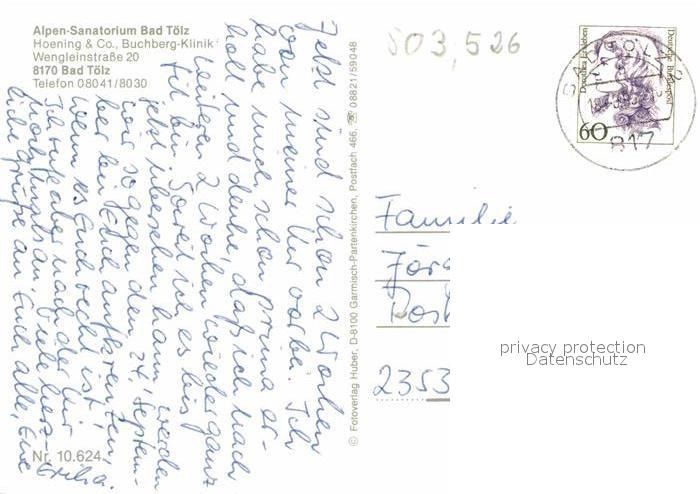 Alpen-Sanatorium Bad Tölz
Hoening & Co., Buchberg-Klinik
Wengleinstraße 20
8170 Bad Tölz
Telefon 08041/8030
Jetzt sind schon 2 Wochen
von meiner Kur vorbei. Ich
habe mich schon prima er-
holt und denke, daß ich nach
weiteren 2 Wochen wieder ganz
fit bin. Soweit ich es bis
jetzt übersehen kann, werden
wir so gegen den 24. Septem-
ber bei Euch aufkreuzen,
wenn es Euch recht ist.
Ich rufe aber nach der Kur
nochmals an. Viele herz-
liche Grüße an Euch alle, Eure
Nr. 10.624
© Fotoverlag Huber, D-8100 Garmisch-Partenkirchen, Postfach 466, ☎ 08821/59048
503,526
Dorothea Erxleben
Deutsche Bundespost
60
BAD TÖLZ
817
Familie
Jörg
Post
2353
privacy protection
Datenschutz